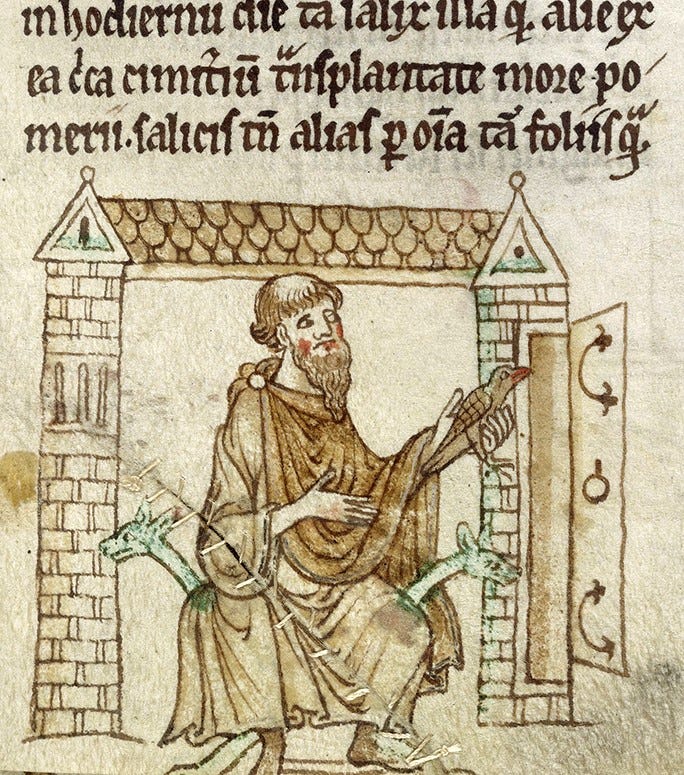 inhodiernũ diẽ tã salix illa qᵃ alie ex
ea cⁱca cimit̃iũ tᵃnsplantate more po
merii. salicis tñ alias ꝑ oĩa tã foliis qᵃ.